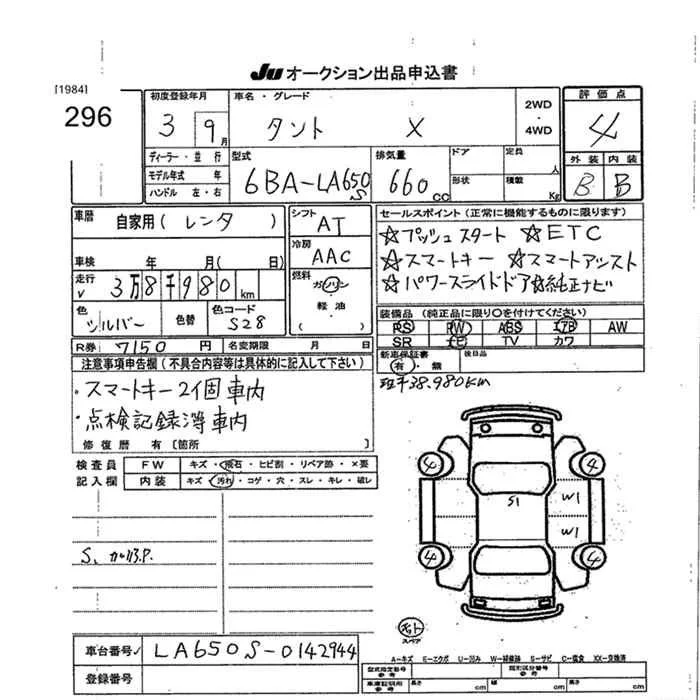 Ju オークション出品申込書
[1984]
296
初度登録年月
3 9月
車名・グレード
タント X
2WD
・
4WD
評価点
4
外装 内装
B B
ディーラー・並行
モデル年式 年
ハンドル 左・右
型式
6BA-LA650S
排気量
660cc
ドア
定員
人
形状
積載
Kg
車歴
自家用(レンタ )
車検 年 月( 日)
走行
3万8千980km
色
シルバー
色替
色コード
S28
シフト
AT
冷房
AAC
燃料
ガソリン
・
軽油
セールスポイント(正常に機能するものに限ります)
☆プッシュスタート ☆ETC
☆スマートキー ☆スマートアシスト
☆パワースライドドア ☆純正ナビ
装備品(純正品に限り○を付けてください)
PS PW ABS エアB AW
SR TV カワ
新車保証書
有・無
後日品
R券 7150円
名変期限 月 日
注意事項申告欄(不具合内容等は具体的に記入して下さい)
・スマートキー2個車内
・点検記録簿車内
修復歴 有〔箇所 〕
38.980KM
検査員
記入欄
FW キズ・飛石・ヒビ割・リペア跡・×要
内装 キズ・汚れ・コゲ・穴・スレ・キレ・破レ
4 4
S1 W1
W1
4 4
スペア
車台番号 LA650S-0142944
登録番号
A-キズ E-エクボ U-凹み W-補修跡 S-サビ C-腐食 XX-交換済
型式指定番号
参考
類別区分番号
参考
車庫証明用
参考
長さ cm 幅 cm 高さ cm